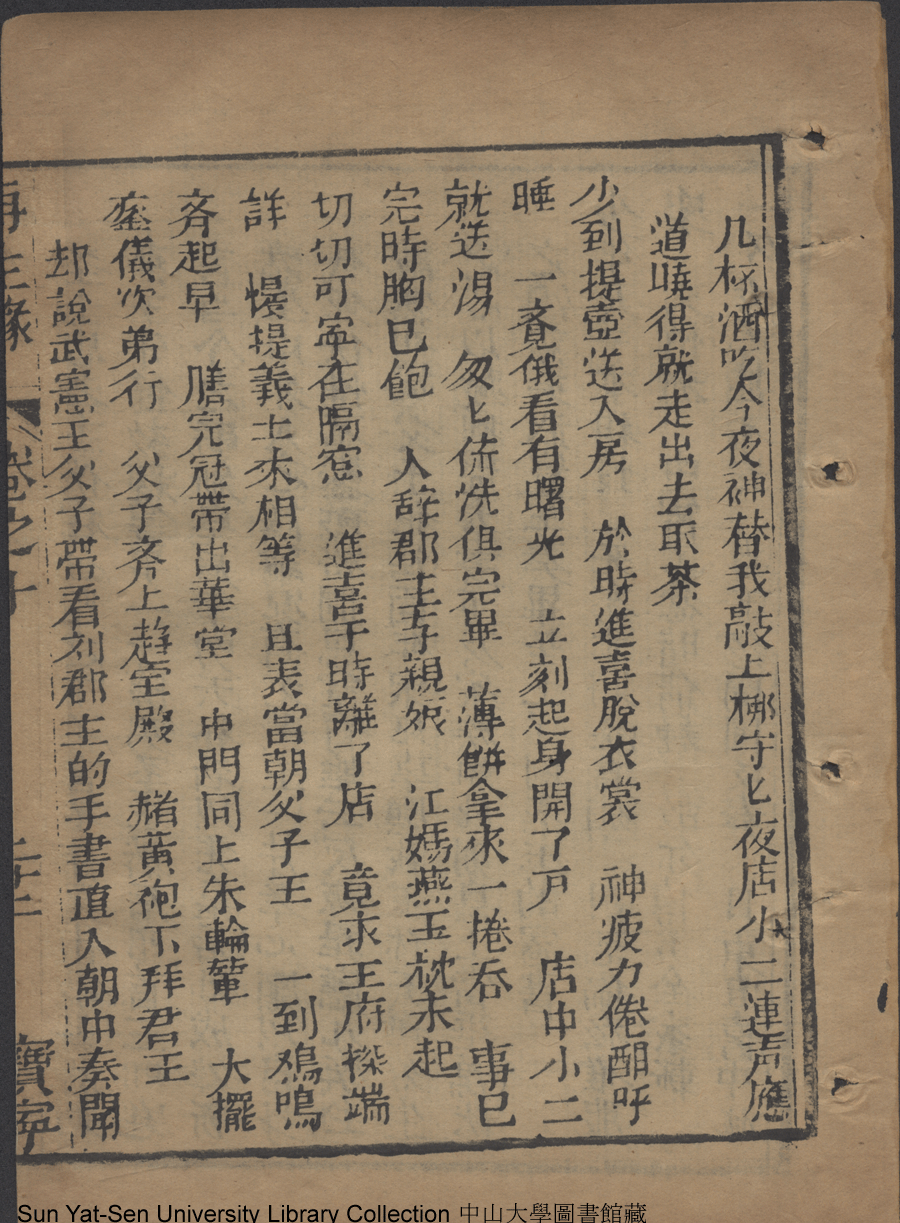 几杯酒吃今夜神替我敲上梆守匕夜店小二連声應
道曉得就走出去取茶
少到提壺送入房　於時進喜脫衣裳　神疲力倦酣呼
睡　一覔俄看有曙光　立刻起身開了戶　店中小二
就送湯　匆匕梳洗俱完畢　薄餅拿來一捲吞　事已
完時胸已飽　入辞郡主子親娘　江媽燕玉枕未起
切切叮寧在隔窓　進喜于時離了店　竟求王府探端
詳　慢提義士來相等　且表當朝父子王　一到鳮鳴
斉起早　膳完冠帶出華堂　中門同上朱輪輦　大擺
鑾儀次弟行　父子斉上趋金殿　赭黃袍下拜君王
却說武憲王父子帶看刘郡主的手書直入朝中奏聞
再生緣　卷之十　二十二　寶寧
Sun Yat-Sen University Library Collection 中山大學圖書館藏